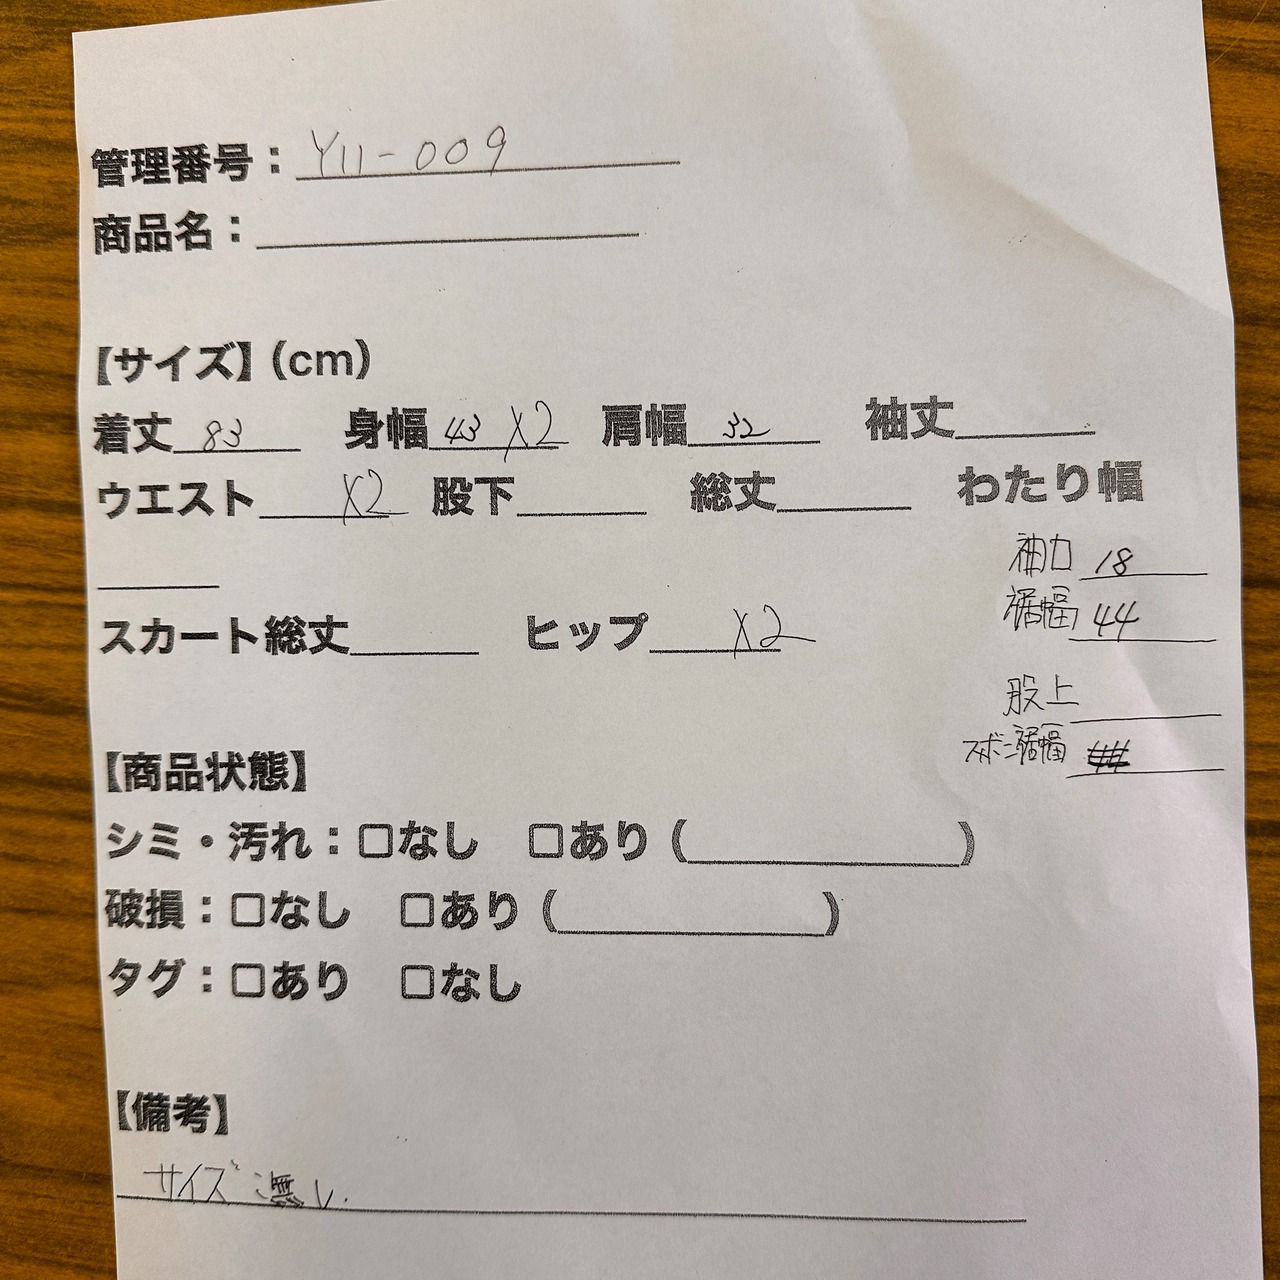 管理番号：Y11-009
商品名：
【サイズ】(cm)
着丈 83 身幅 43 X2 肩幅 32 袖丈
ウエスト X2 股下 総丈 わたり幅
袖口 18
裾幅 44
スカート総丈 ヒップ X2
股上
ズボン裾幅
【商品状態】
シミ・汚れ：□なし □あり ( )
破損：□なし □あり ( )
タグ：□あり □なし
【備考】
サイズ 無し.